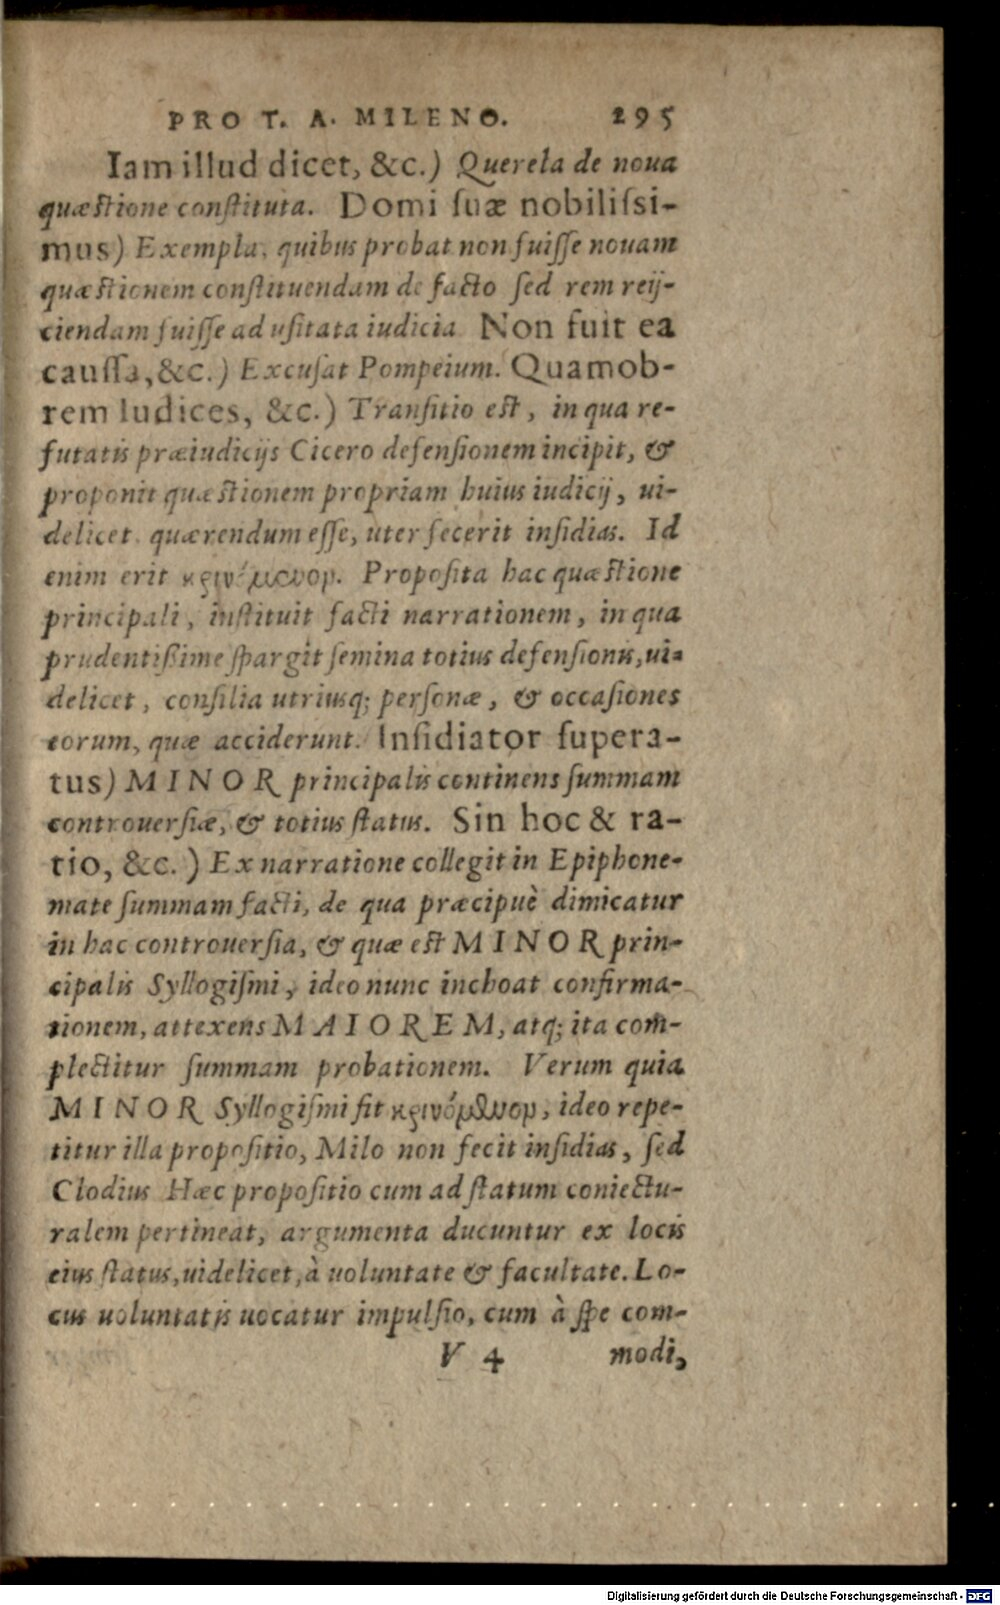 PRO T. A. MILENO. 295
Iam illud dicet, &c.) Querela de noua
quæſtione conſtituta. Domi ſuæ nobiliſsi-
mus) Exempla, quibus probat non fuiſſe nouam
quæſtionem conſtituendam de facto ſed rem reij-
ciendam fuiſſe ad uſitata iudicia Non fuit ea
cauſſa, &c.) Excuſat Pompeium. Quamob-
rem Iudices, &c.) Tranſitio eſt, in qua re-
futatis præiudicijs Cicero defenſionem incipit, &
proponit quæſtionem propriam huius iudicij, ui-
delicet quærendum eſſe, uter fecerit inſidias. Id
enim erit κρινόμενον. Propoſita hac quæſtione
principali, inſtituit facti narrationem, in qua
prudentißime ſpargit ſemina totius defenſionis, ui-
delicet, conſilia utriusq; perſonæ, & occaſiones
eorum, quæ acciderunt. Inſidiator ſupera-
tus) MINOR principalis continens ſummam
controuerſiæ, & totius ſtatus. Sin hoc & ra-
tio, &c.) Ex narratione collegit in Epiphone-
mate ſummam facti, de qua præcipuè dimicatur
in hac controuerſia, & quæ eſt MINOR prin-
cipalis Syllogiſmi, ideo nunc inchoat confirma-
tionem, attexens MAIOREM, atq; ita com-
plectitur ſummam probationem. Verum quia
MINOR Syllogiſmi fit κρινόμενον, ideo repe-
titur illa propoſitio, Milo non fecit inſidias, ſed
Clodius Hæc propoſitio cum ad ſtatum coniectu-
ralem pertineat, argumenta ducuntur ex locis
eius ſtatus, uidelicet, à uoluntate & facultate. Lo-
cus uoluntatis uocatur impulſio, cum à ſpe com-
V 4 modi,
Digitalisierung gefördert durch die Deutsche Forschungsgemeinschaft - DFG